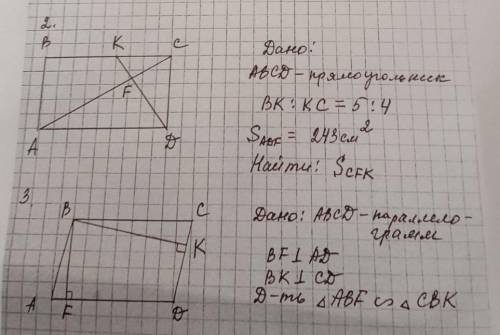 2.
B K C
F
A D
Дано:
ABCD - прямоугольник
BK : KC = 5 : 4
S_ADF = 243 см²
Найти: S_CFK
3.
B C
K
A F D
Дано: ABCD - параллело-
грамм
BF ⊥ AD
BK ⊥ CD
Д-ть △ABF ∽ △CBK